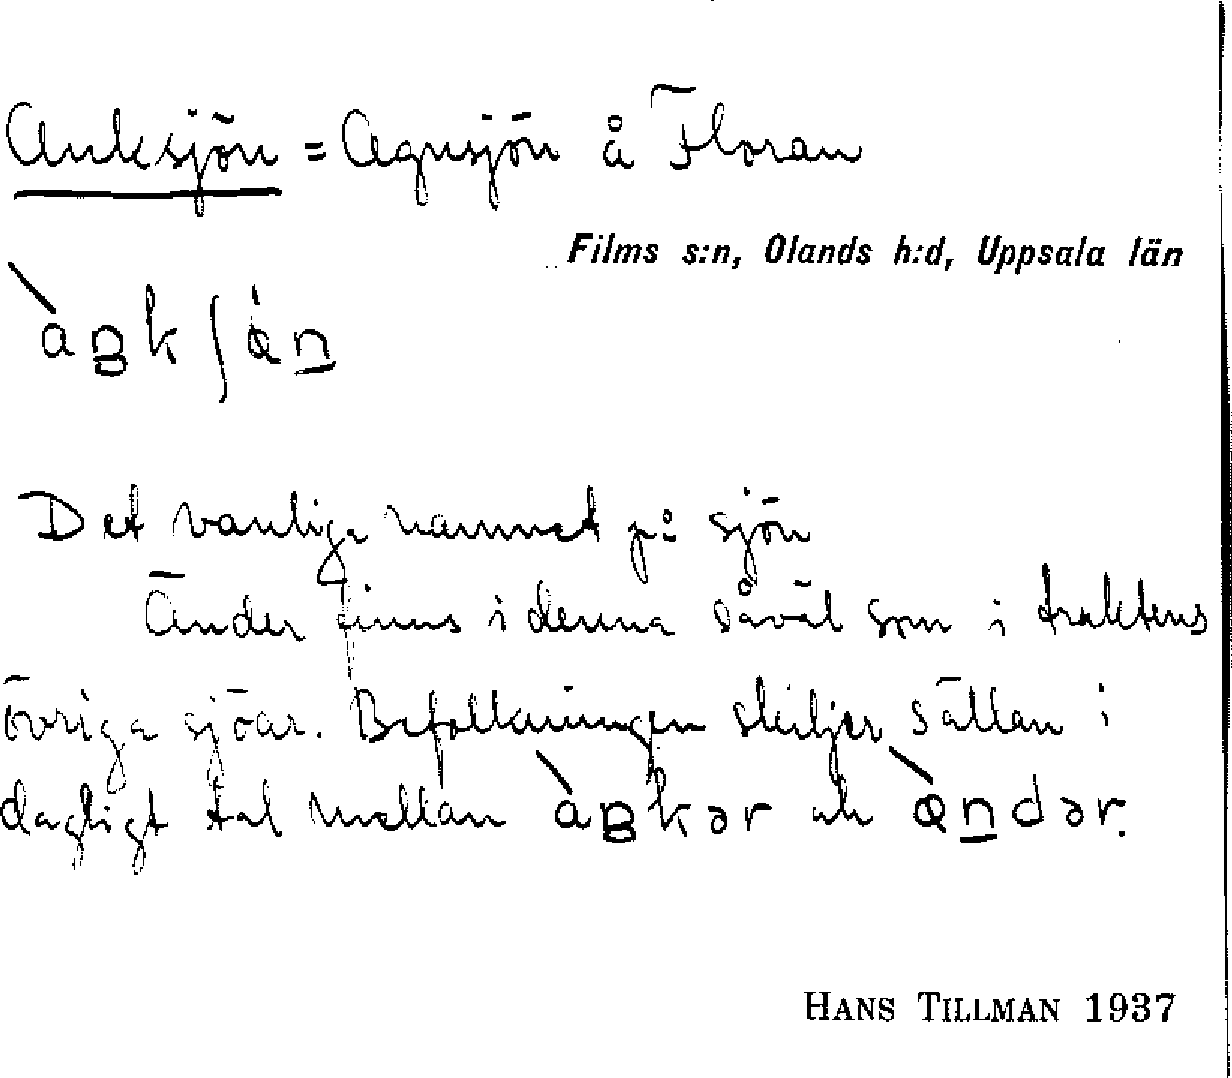 Anksjön = Agnsjön å Floran
Films s:n, Olands h:d, Uppsala län
Det vanliga namnet på sjön
Änder finns i denna såväl som i traktens
övriga sjöar. Befolkningen skiljer sällan i
dagligt tal mellan och
HANS TILLMAN 1937